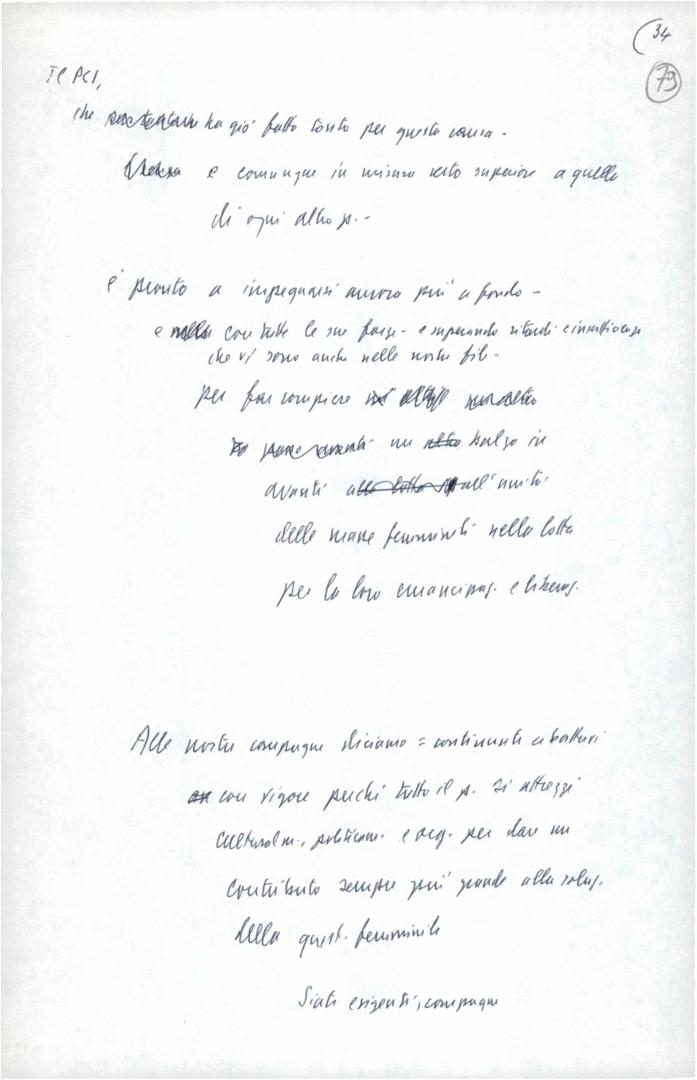 34
79
Il PCI,
che ha già fatto tanto per questa causa -
e comunque in misura certo superiore a quella
di ogni altro p. -
è pronto a impegnarsi ancora più a fondo -
e con tutte le sue forze - e superando ritardi e insufficienze
che vi sono anche nelle nostre file -
per far compiere
un balzo in
avanti all'unità
delle masse femminili nella lotta
per la loro emancipaz. e liberaz.
Alle nostre compagne diciamo = continuate a battervi
con vigore perché tutto il p. si attrezzi
culturalm., politicam. e org. per dare un
contributo sempre più grande alla soluz.
della quest. femminile
Siate esigenti, compagne